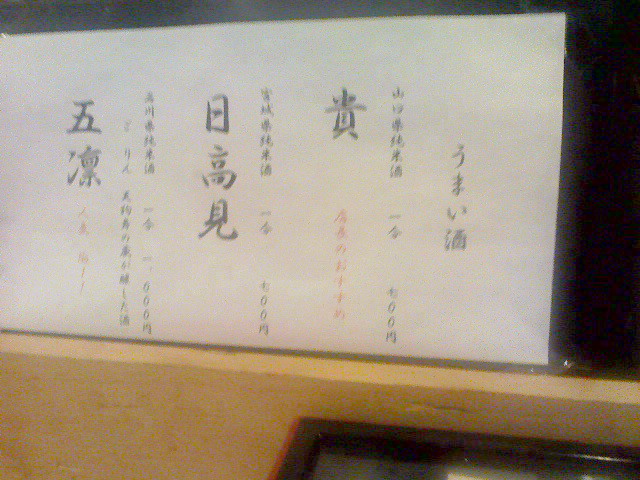 うまい酒
山口県純米酒 一合 七00円
貴 店長のおすすめ
宮城県純米酒 一合 七00円
日高見
石川県純米酒 一合 一、000円
ごりん 天狗舞の蔵が醸した酒
五凛 人気